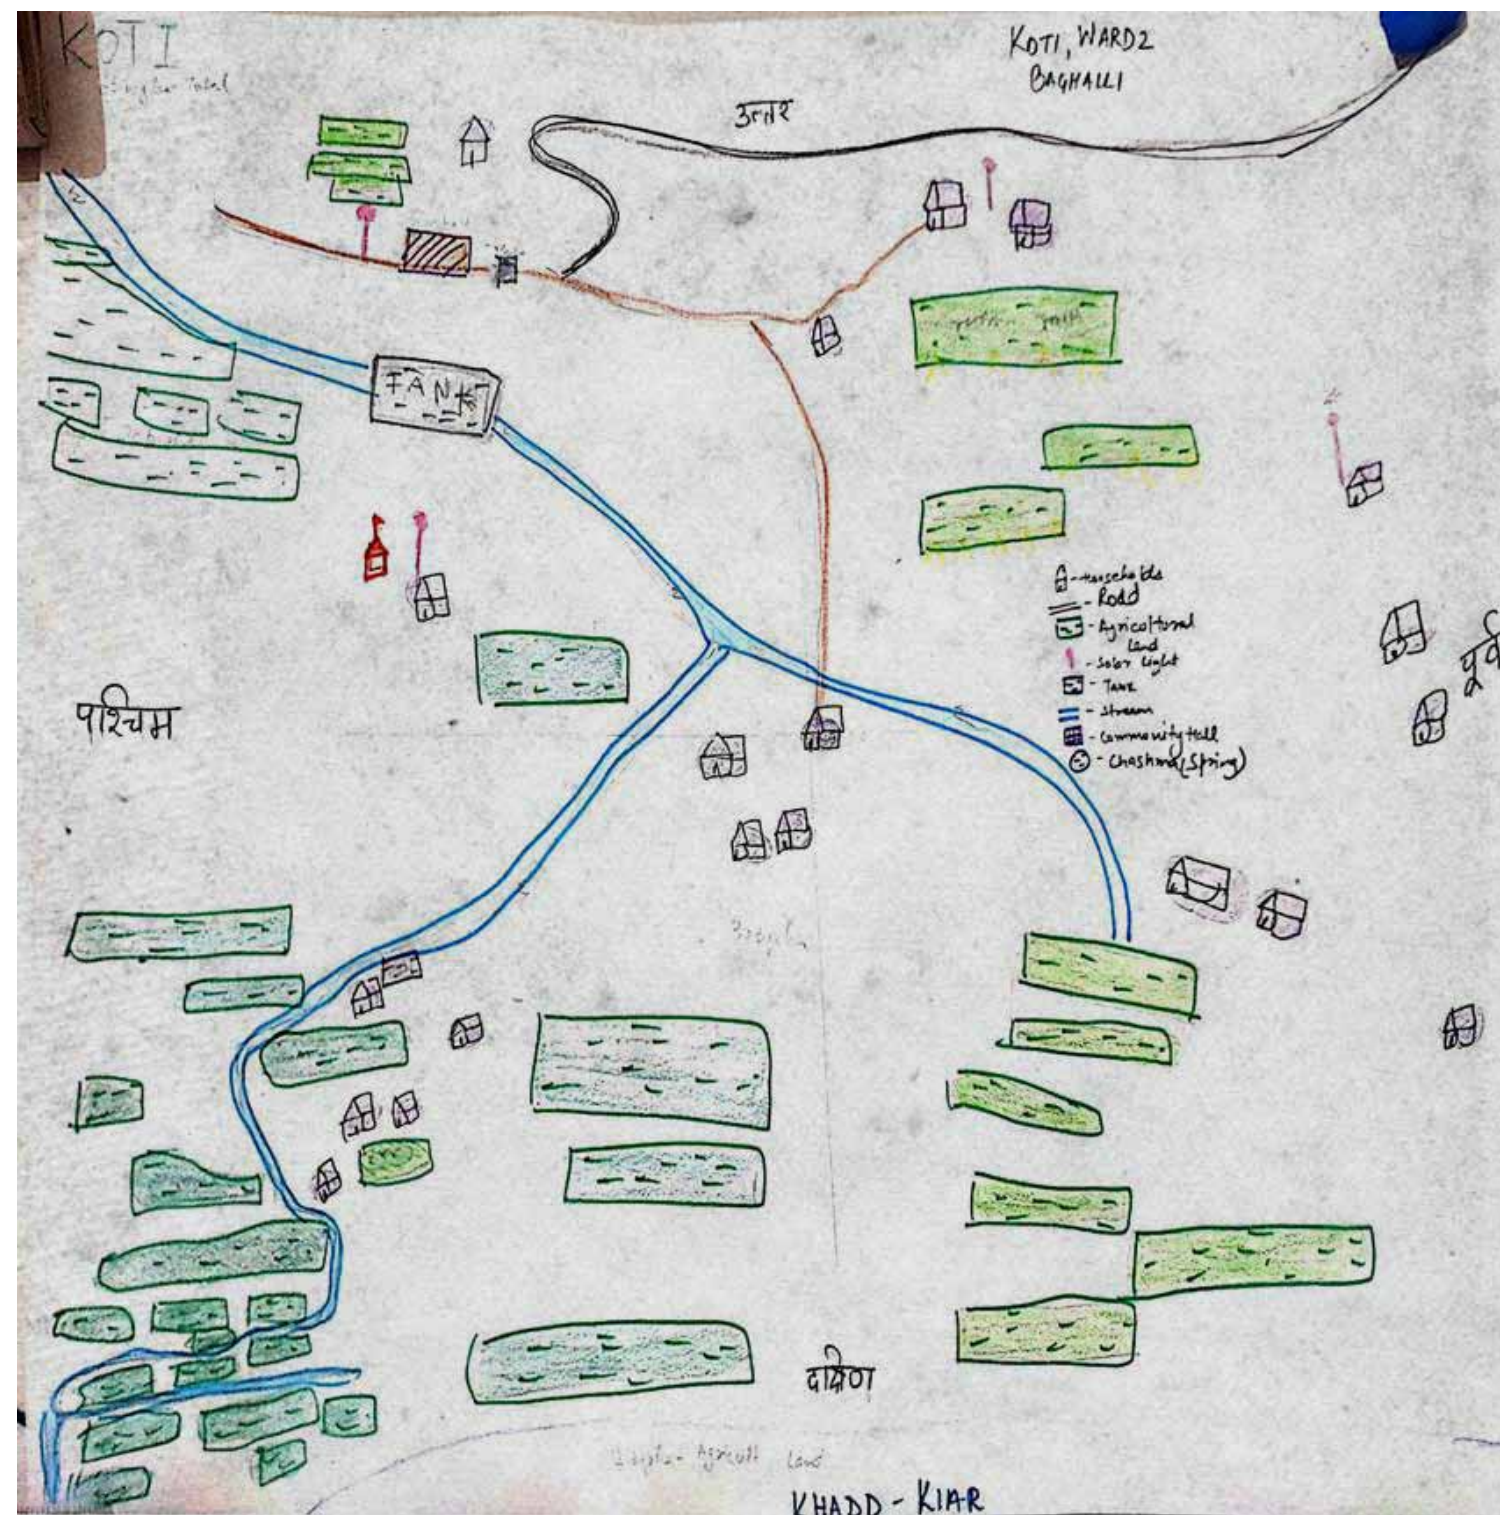 KOTI
KOTI, WARD 2
BAGHALLI
उत्तर
TANK
- Households
- Road
- Agricoltural
Land
- Solar Light
- Tank
- Stream
- Community Hall
- Chashma (Spring)
पूर्व
पश्चिम
दक्षिण
Agricult Land
KHADD - KIAR